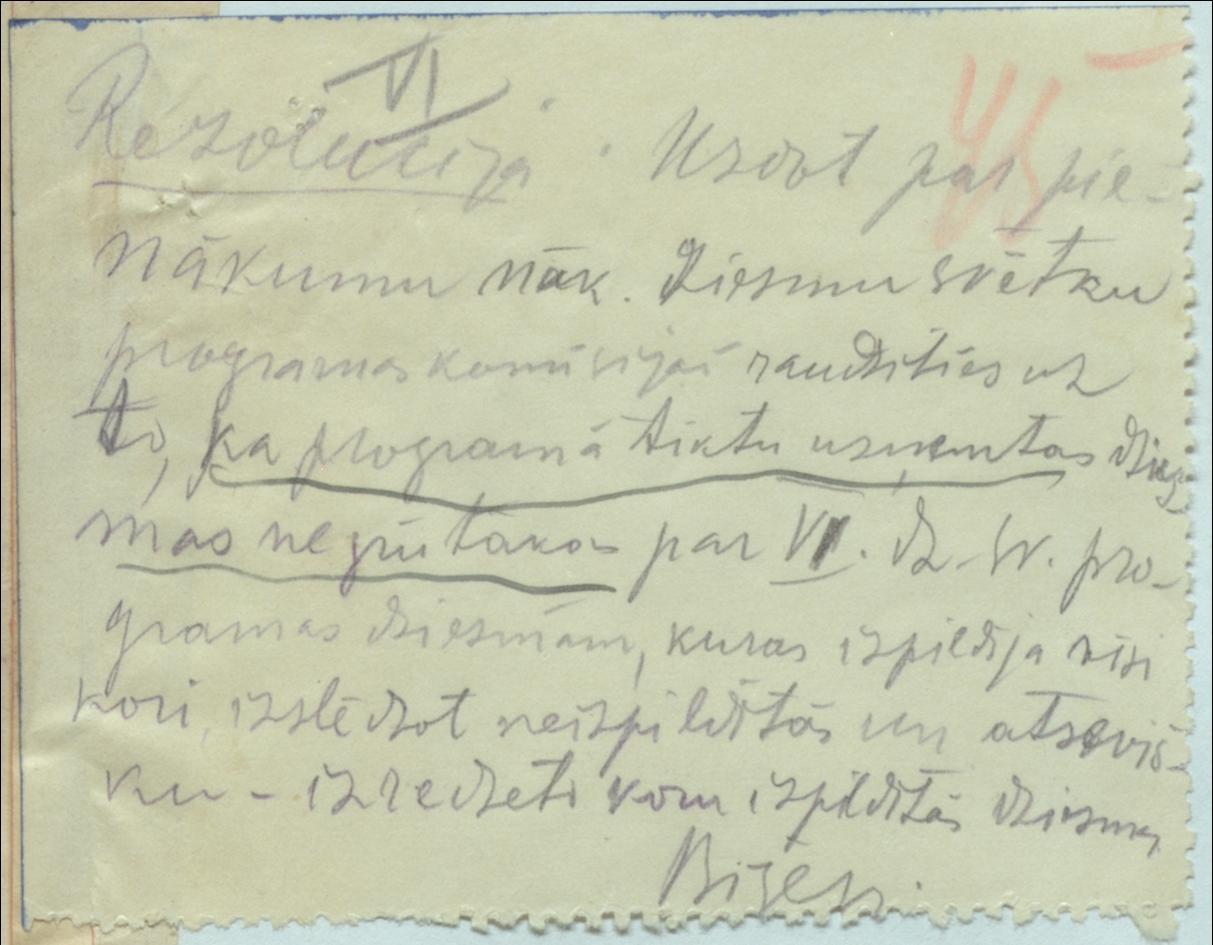 VI
45
Rezolucija. Uzdot par pie-
nākumu nāk. Dziesmu svētku
programas komisijai raudzīties uz
to, ka programā tiktu uzņemtas dzies-
mas ne grūtakas par VII. dz. sv. pro-
gramas dziesmām, kuras izpildīja visi
kori, izslēdzot neizpildītās un atseviš-
ku - izredzētu koru izpildītās dziesmas